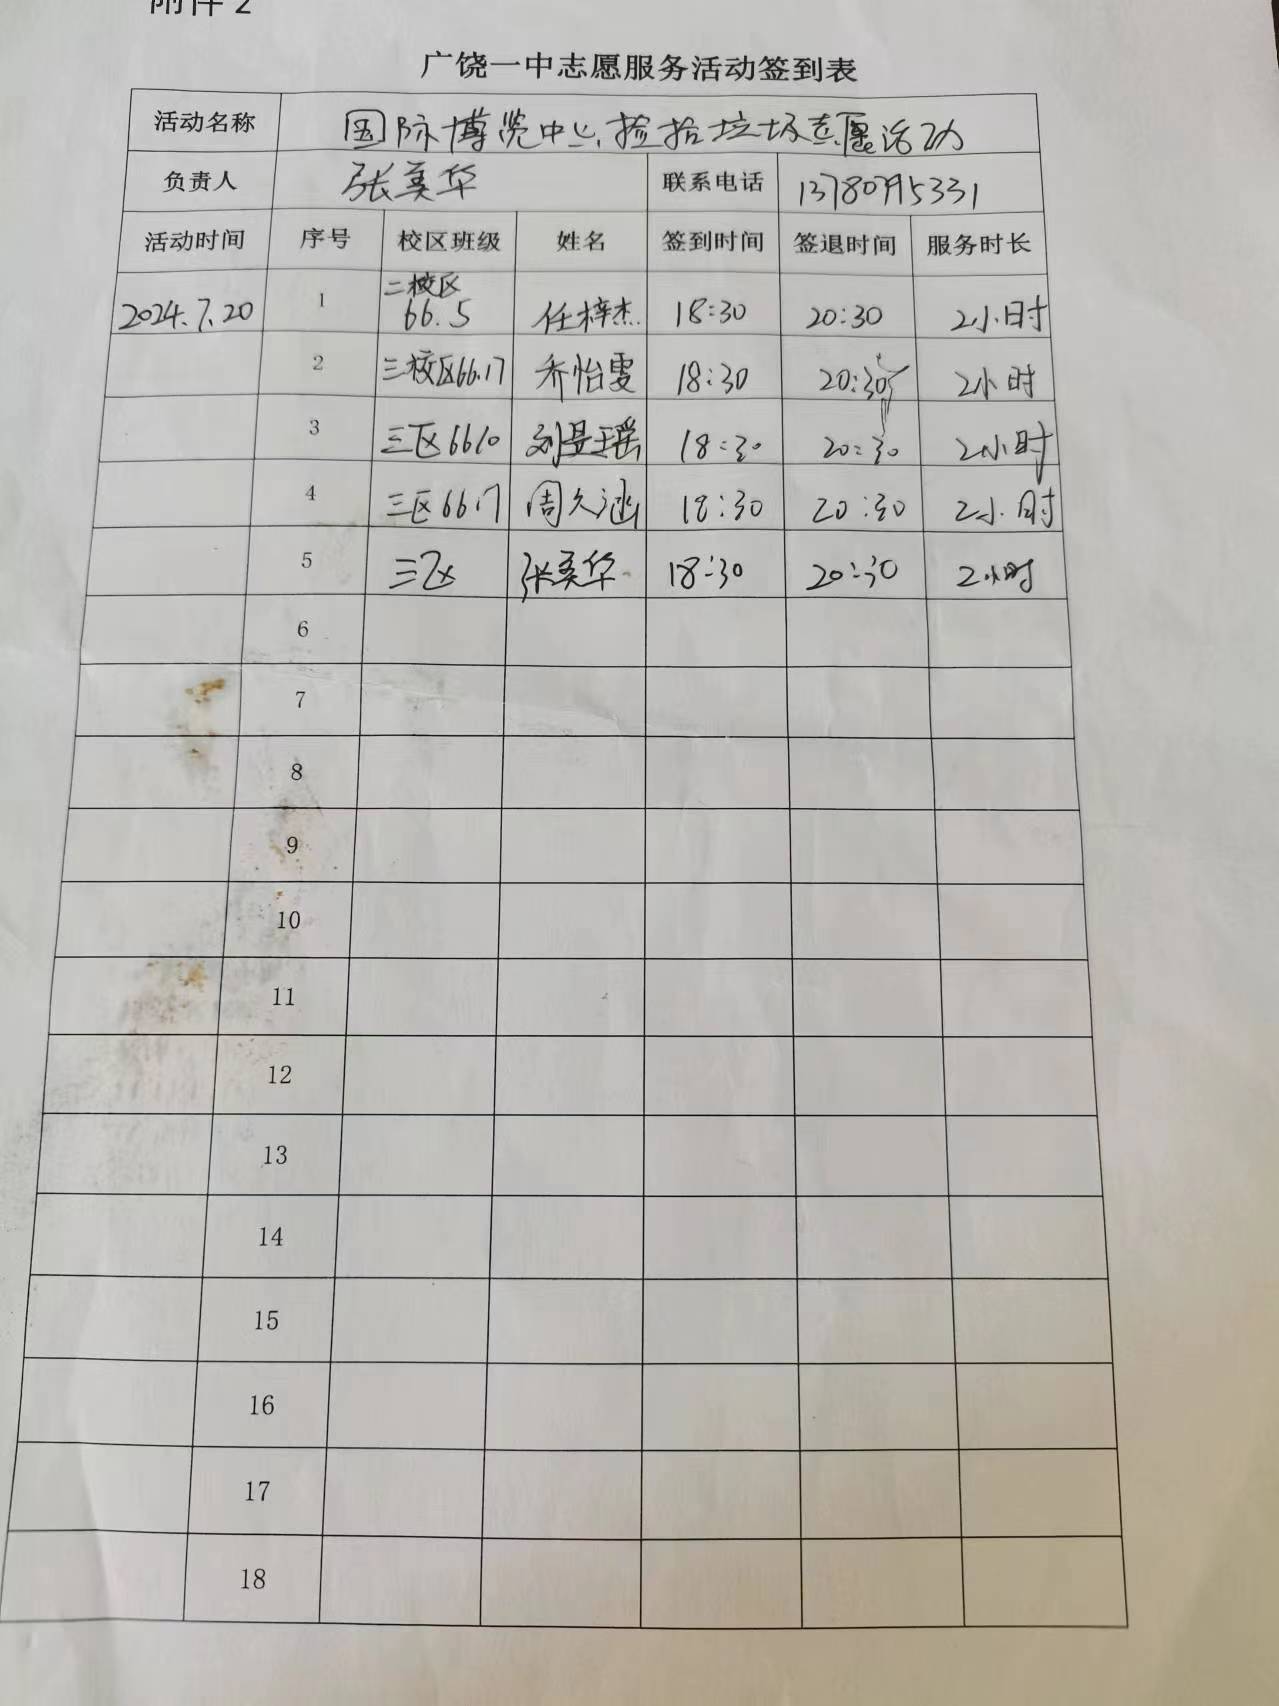 附件2
广饶一中志愿服务活动签到表
活动名称 国际博览中心捡拾垃圾志愿活动
负责人 张美华 联系电话 13780795331
活动时间 序号 校区班级 姓名 签到时间 签退时间 服务时长
2024.7.20 1 二校区 66.5 任梓杰 18:30 20:30 2小时
2 三校区66.17 乔怡雯 18:30 20:30 2小时
3 三区6610 刘昱瑶 18:30 20:30 2小时
4 三区66.17 周久涵 18:30 20:30 2小时
5 三区 张美华 18:30 20:30 2小时
6
7
8
9
10
11
12
13
14
15
16
17
18